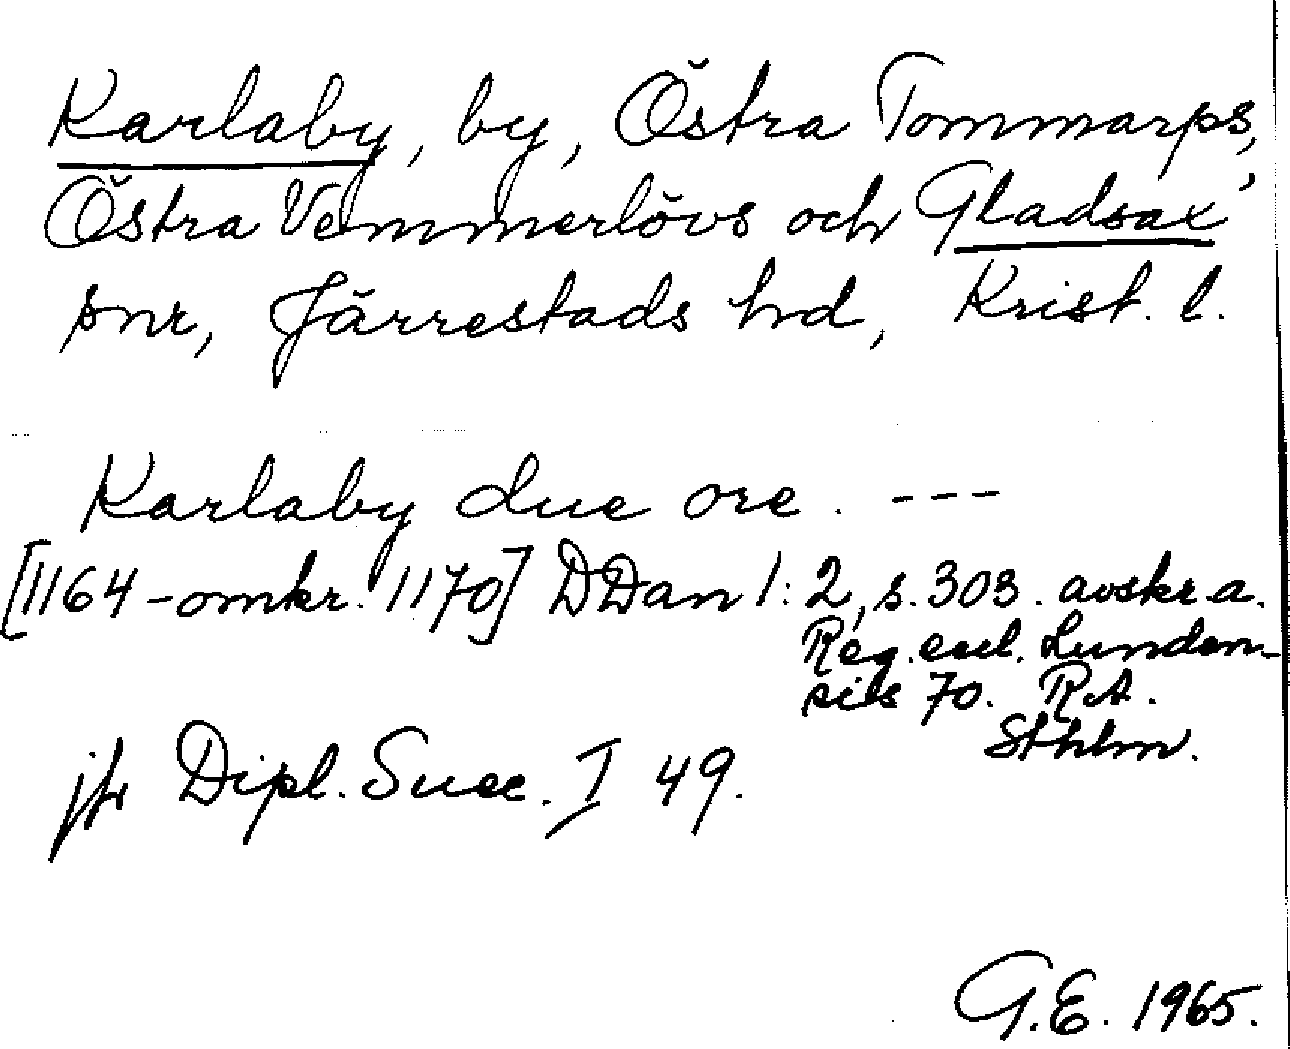 Karlaby, by, Östra Tommarps,
Östra Vemmerlövs och Gladsax,
snr, Järrestads hd, Krist. l.
Karlaby due ore. ---
[1164 - omkr. 1170] DDan 1:2, s. 303. avskr. a.
Reg. eccl. Lunden-
sis 70. RA.
Sthlm.
jfr Dipl. Suec. I 49.
G.E. 1965.